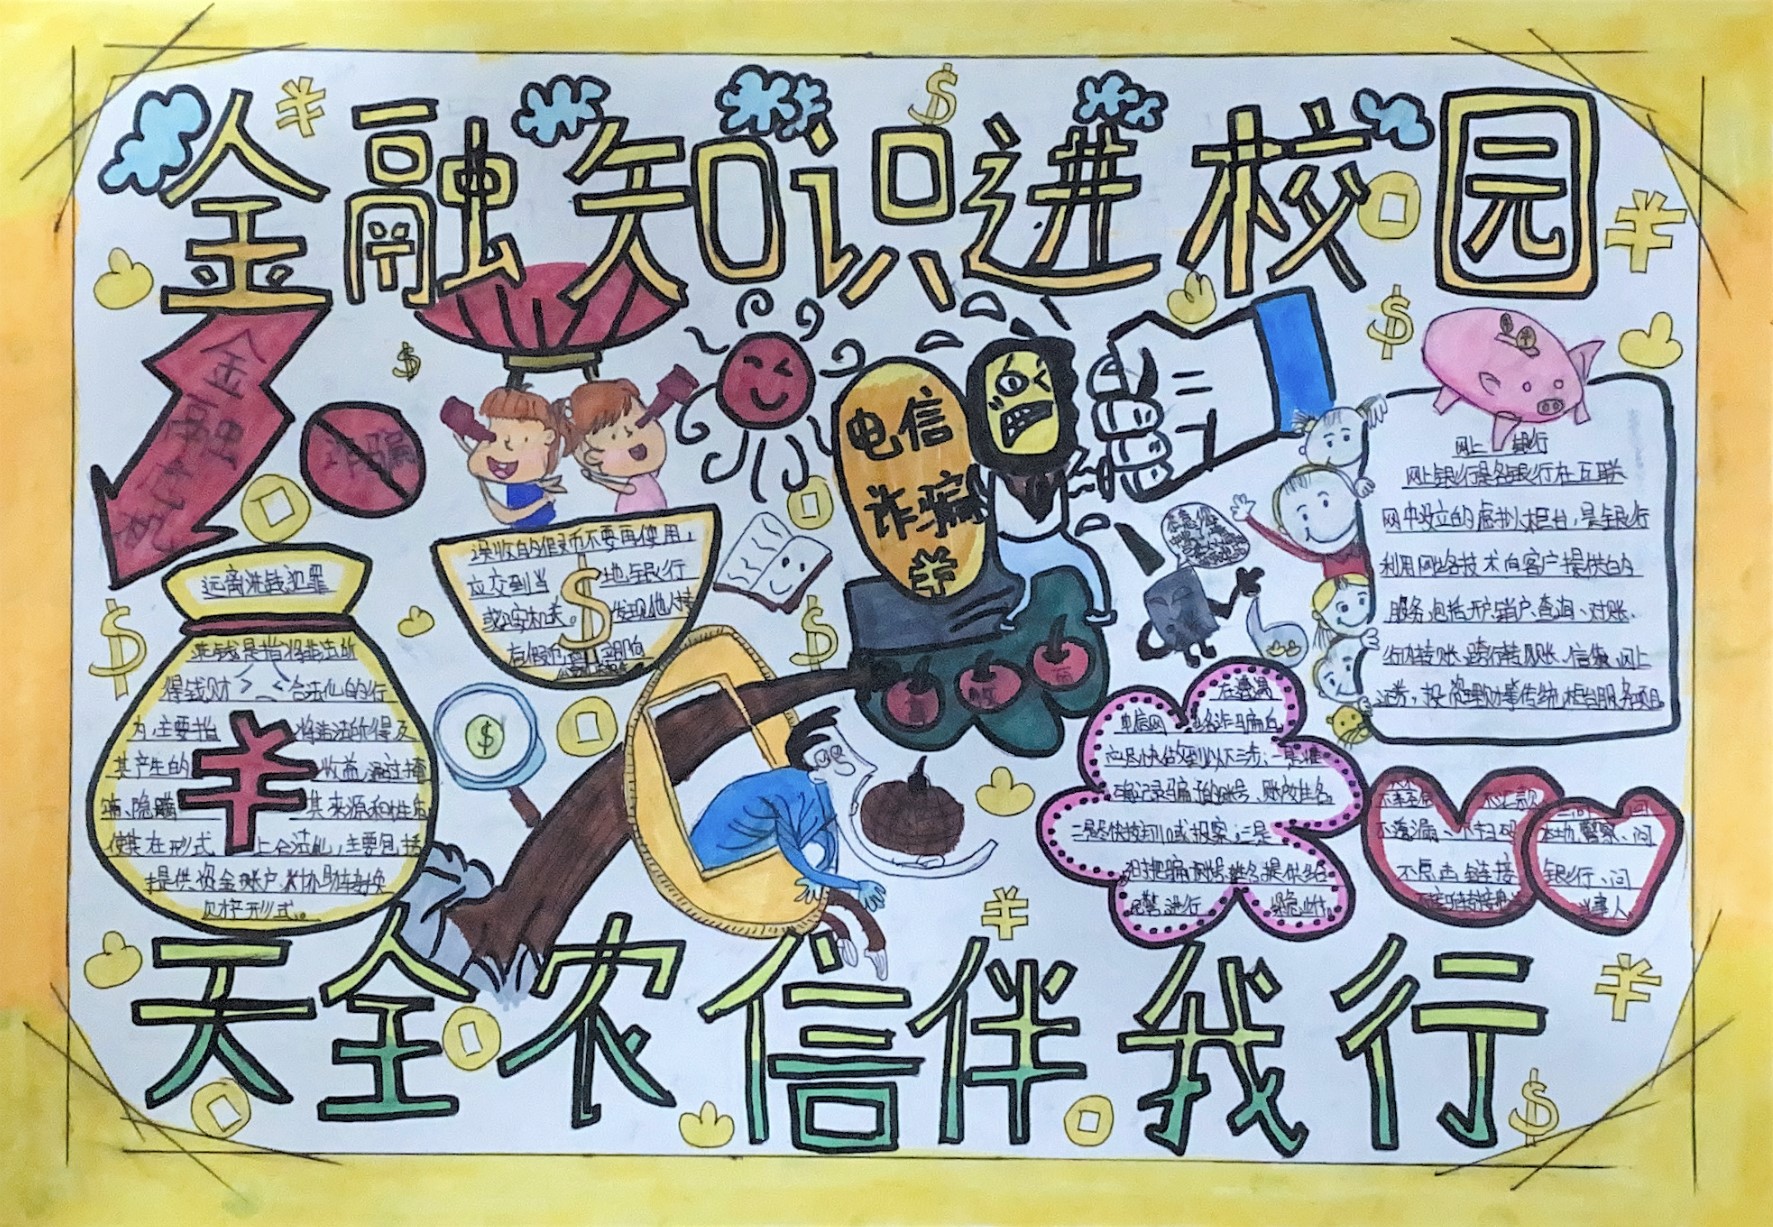 金融知识进校园
金融
诈骗
电信
诈骗
误收的假币不要再使用，
应交到当地银行
或公安机关。发现他人持
有假币
远离洗钱犯罪
洗钱是指将非法所
得钱财合法化的行
为，主要指将违法所得及
其产生的收益，通过掩
饰、隐瞒其来源和性质
使其在形式上合法化，主要包括
提供资金账户、协助转换
财产形式。
网上银行
网上银行是各银行在互联
网中设立的虚拟柜台，是银行
利用网络技术向客户提供的
服务，包括开户、销户、查询、对账、
行内转账、跨行转账、信贷、网上
证券，投资理财等传统柜台服务项目
在遭遇
电信网络诈骗后
应尽快做到以下三步：一是准
确记录骗子的账号、账户姓名
二是尽快拨打110或报案；三是
民警进行紧急止付
不汇款
不透漏、不扫码
不点击链接
本地警察、问
银行、问
当事人
天全农信伴我行